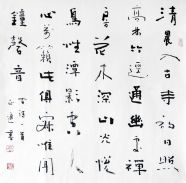 清晨入古寺初日照
高林曲徑通幽處禪
房花木深山光悅
鳥性潭影空人
心萬籟此俱寂惟聞
鐘磬音